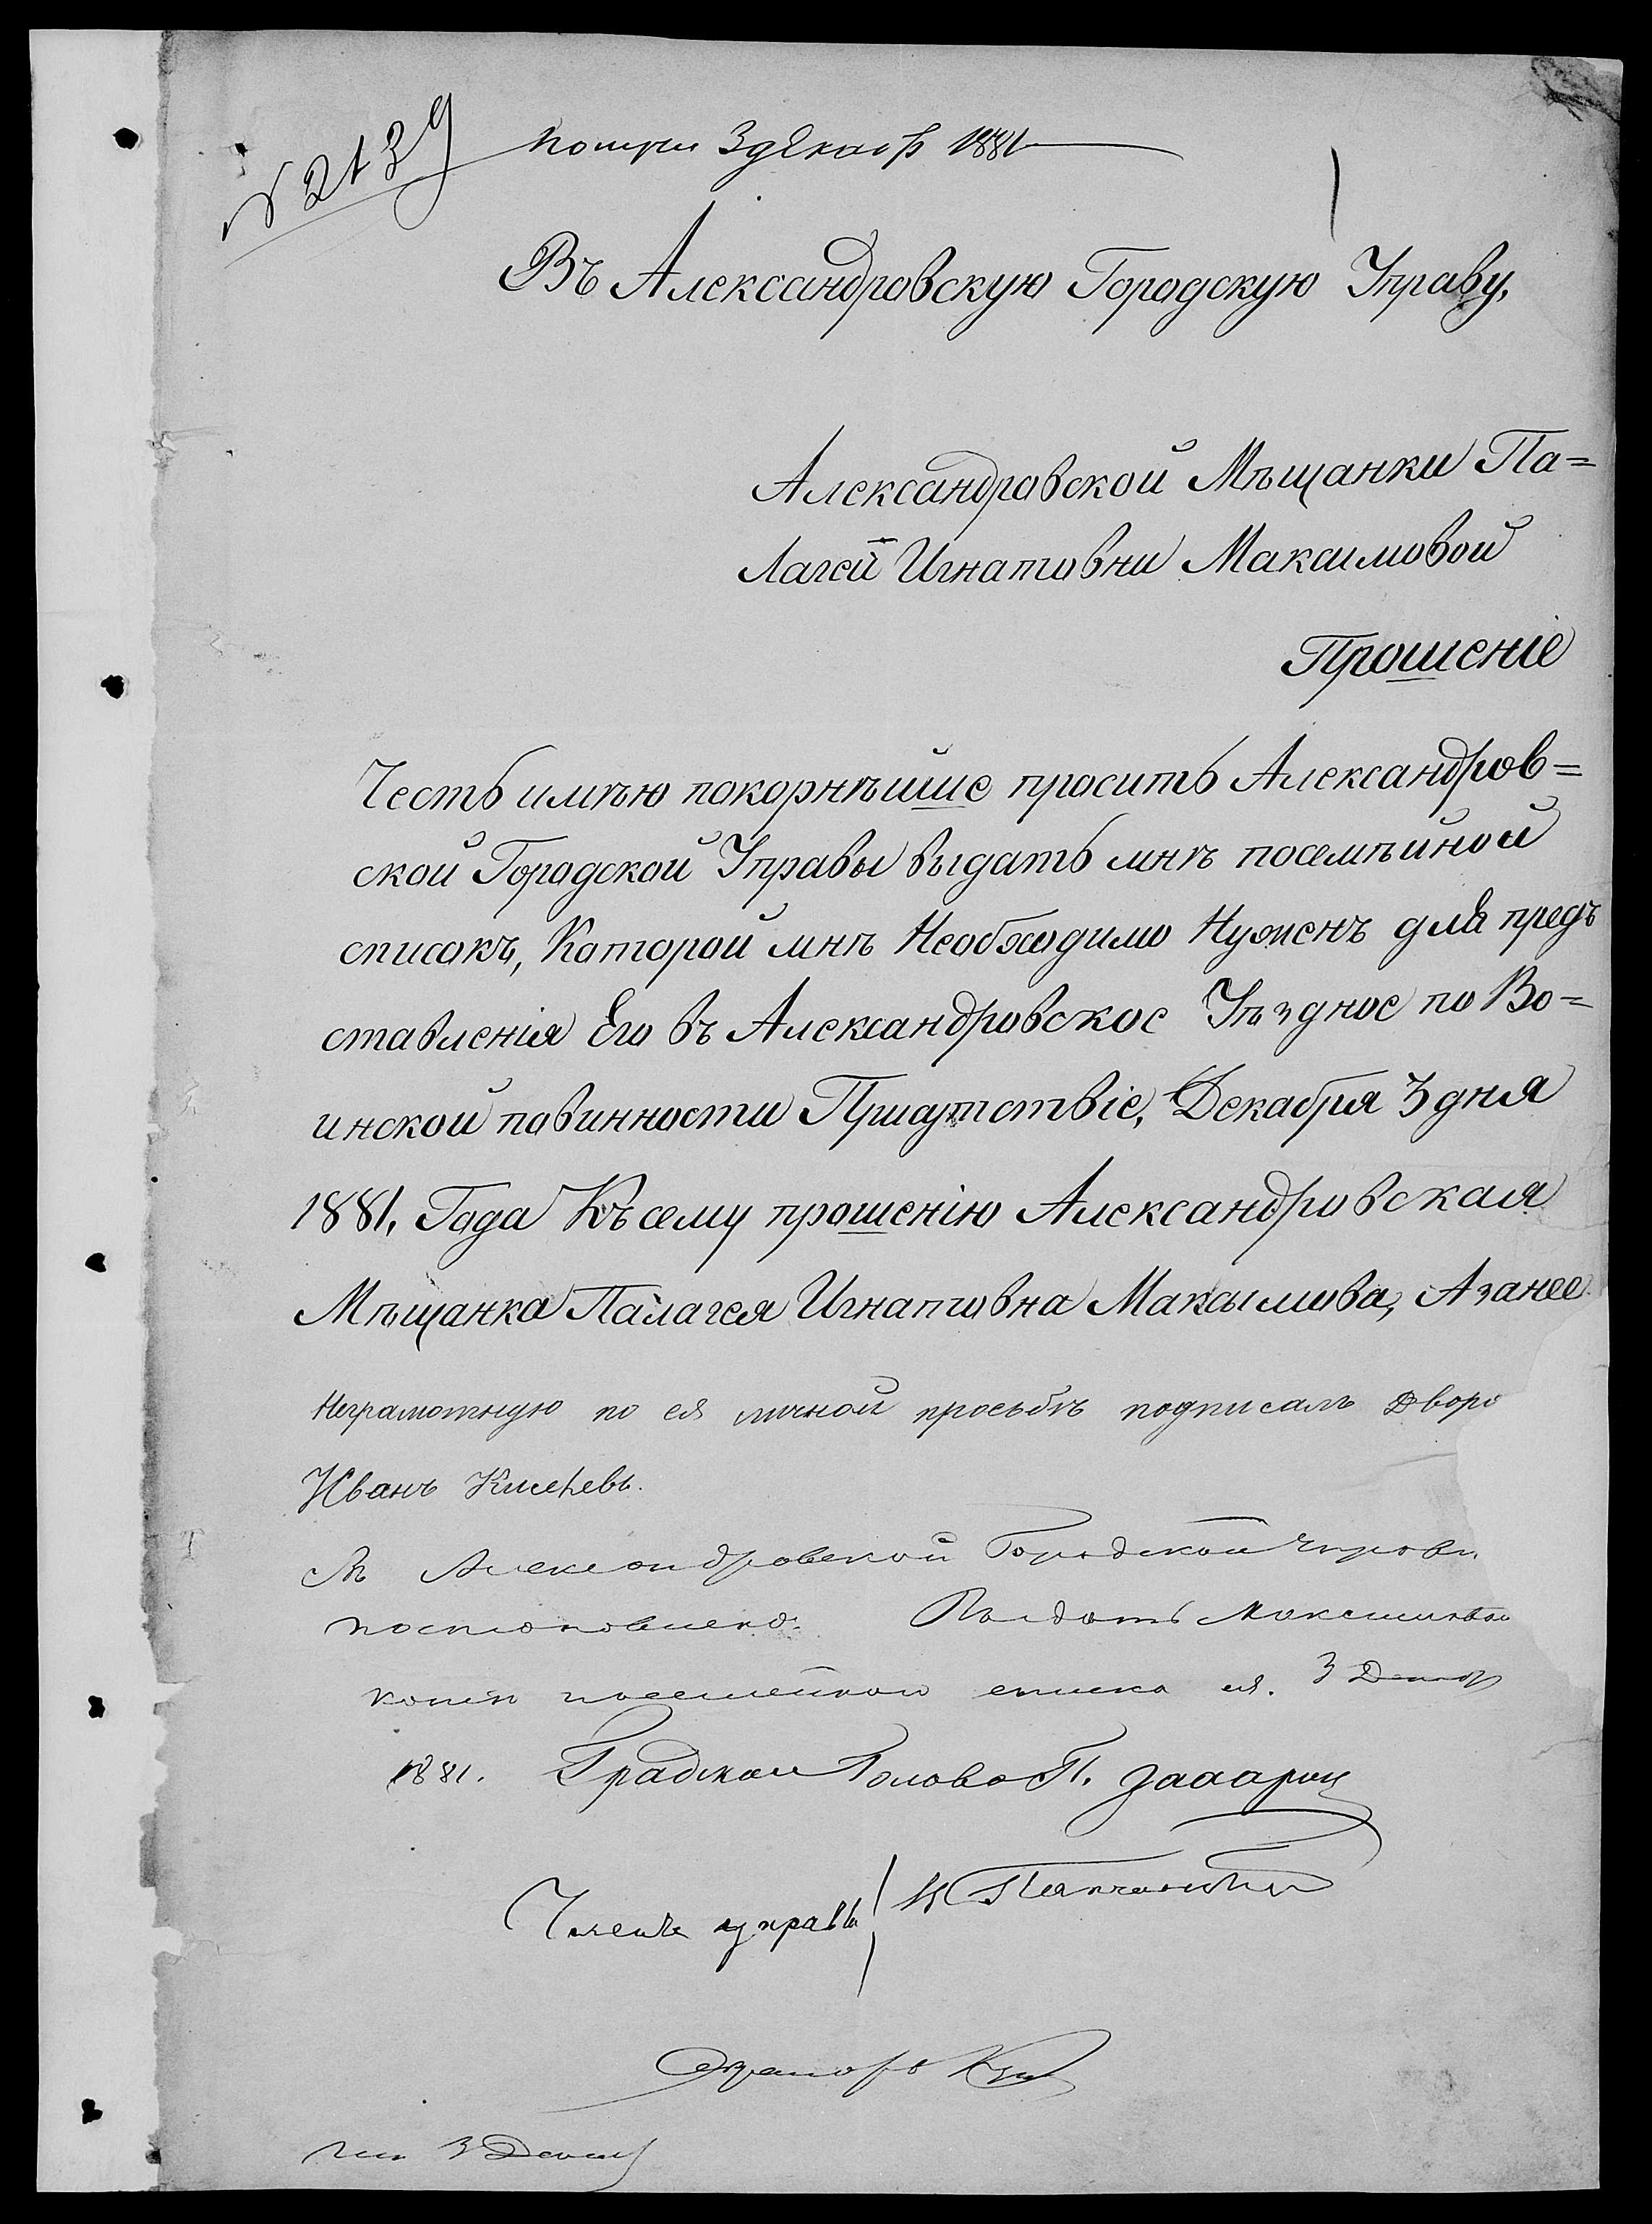 № 2139 получ 3 декабр 1881
Въ Александровскую Городскую Управу,
Александровской Мѣщанки Па=
лагеи Игнатовни Максимовой
Прошеніе
Честь имѣю покорнѣйше просить Александров=
ской Городской Управы выдать мнѣ посемѣйной
списокъ, Которой мнѣ Необходимо Нуженъ для предъ
ставленія Его въ Александровское Уѣздное по Во=
инской повинности Присутствіе, Декабря 3 дня
1881, Года Къ сему прошенію Александровская
Мѣщанка Палагея Игнатовна Максимова, А за нее
Неграмотную по ея личной просьбѣ подписалъ Дворо
Иванъ Киселевъ.
Въ Александровской Городской Управѣ
постановлено: Выдать Максимовой
копію посемейного списка ея. 3 Декабр
1881. Градской Голова П. Захарин
Членъ управы
3 Декаб